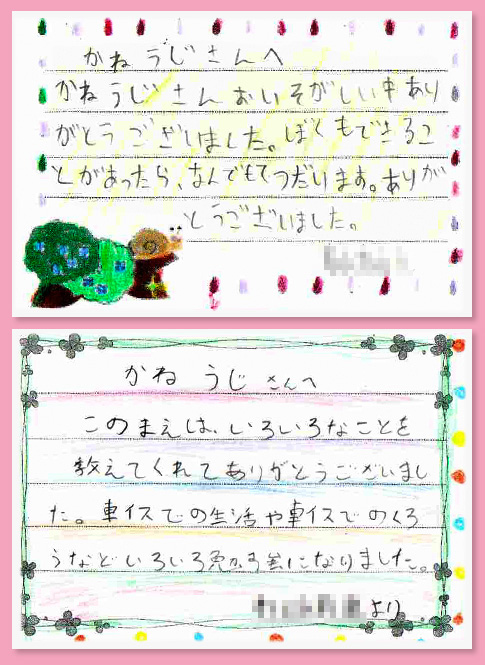 かねうじさんへ
かねうじさんおいそがしい中あり
がとうございました。ぼくもできるこ
とがあったら、なんでもてつだいます。ありが
とうございました。
かねうじさんへ
このまえは、いろいろなことを
教えてくれてありがとうございまし
た。車イスでの生活や車イスでのくろ
うなどいろいろ になりました。
より